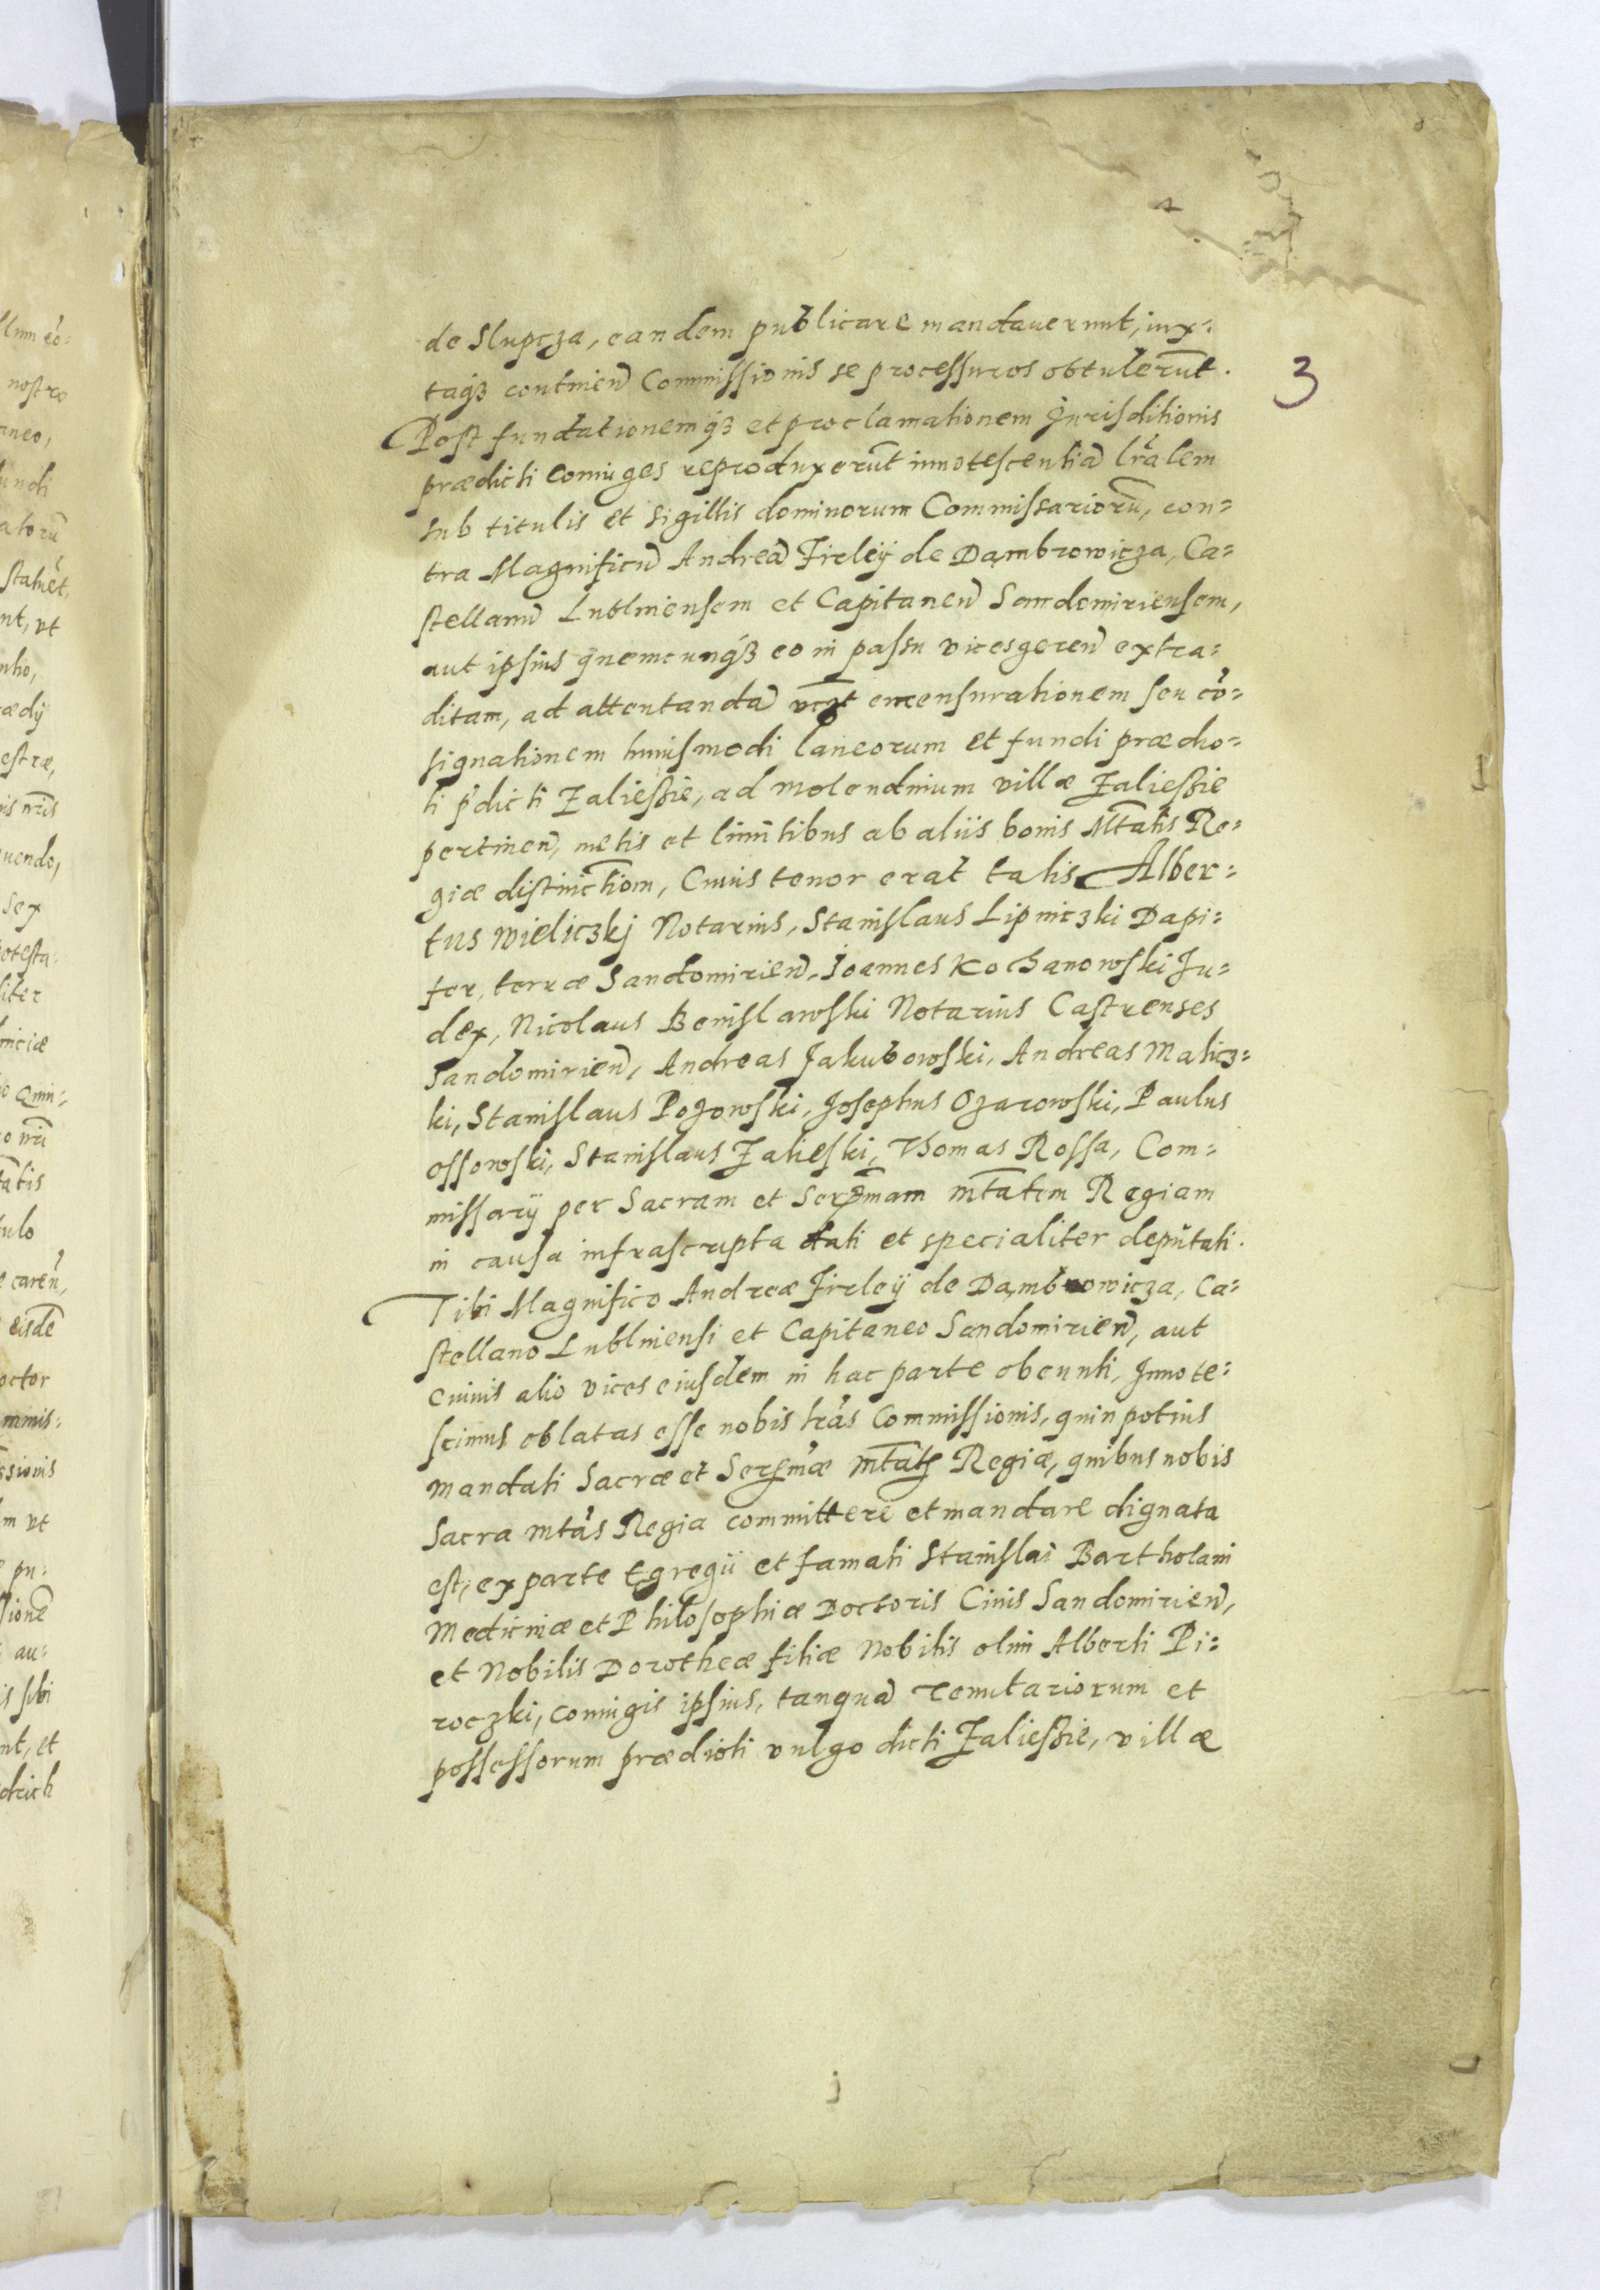 de Slupcza, eandem publicare mandauerunt, iux:
taq3 continen̄ Commissionis se processuros obtulerūt.
3
Post fundationemq3 et proclamationem Jurisditionis
prædicti coniuges reproduxerūt innotescentiā lr̄alem
sub titulis et sigillis dominorum Commissariorū, con=
tra Magnificū Andreā Firleÿ de Dambrowicza, Ca=
stellanū Lublinensem et Capitaneū Sandomiriensem,
aut ipsius quemcunq3 eo in passu vicesgeren̄ extra=
ditam, ad attentandā emensurationem seu cō=
signationem huiusmodi laneorum et fundi prædio=
li p̄dicti Zaliessie, ad molendinum villæ Zaliessie
pertinen̄, metis et limitibus ab aliis bonis Mt̄atis Re=
giæ distinctiom, Cuius tenor erat talis Alber=
tus Wieliczkj Notarius, Stanislaus Lipniczki Dapi=
fer, terræ Sandomirien̄, Joannes Kochanowski Ju=
dex, Nicolaus Bonislawski Notarius Castrenses
Sandomirien̄, Andreas Jakubowski, Andreas Malicz=
ki, Stanislaus Pozowski, Josephus Ozarowski, Paulus
Ossowski, Stanislaus Zalieski, Thomas Rossa, Com=
missarÿ per Sacram et Serm̄am mt̄atem Regiam
in causa infrascripta dati et specialiter deputati.
Tibi Magnifico Andreæ Firleÿ de Dambrowicza, Ca=
stellano Lublinensi et Capitaneo Sandomirien̄, aut
cuiuis alio vices eiusdem in hac parte obeunti, Innote=
scimus oblatas esse nobis lr̄as Commissionis, quin potius
mandati Sacræ et Serm̄æ mt̄atis Regiæ, quibus nobis
Sacra mtās Regia committere et mandare dignata
est, ex parte Egregii et famati Stanislai Bartholani
Medicinæ et Philosophiæ Doctoris Ciuis Sandomirien̄,
et Nobilis Dorotheæ filiæ Nobilis olim Alberti Pi=
roczki, coniugis ipsius, tanquā Tenutariorum et
possessorum prædioli vulgo dicti Zaliessie, villæ